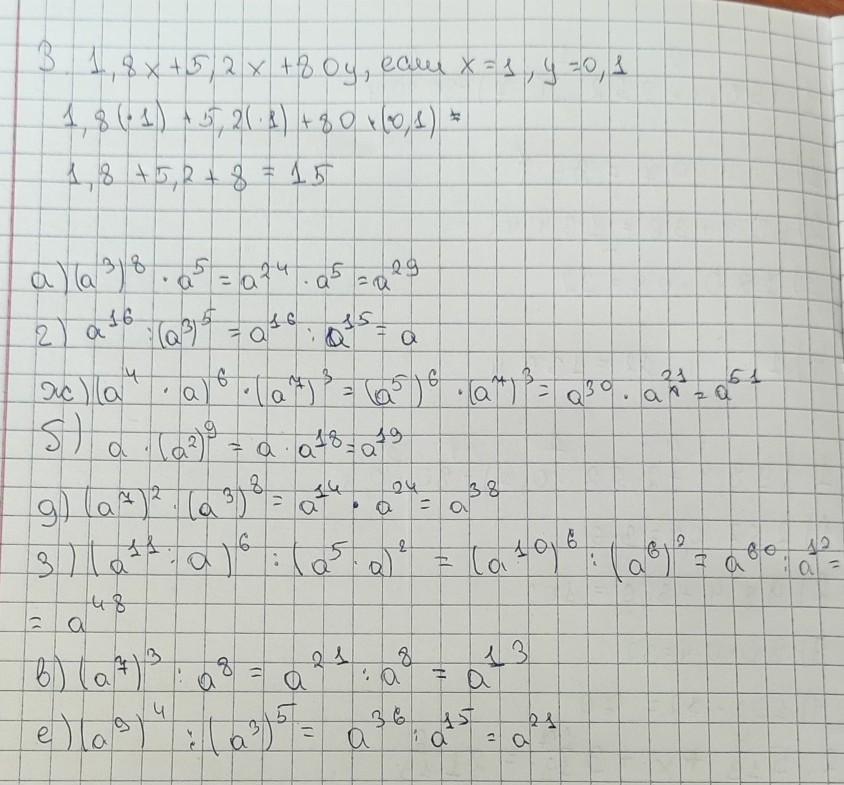 3. 1,8x+5,2x+80y, если x=1, y=0,1
1,8(·1) + 5,2(·1) + 80 · (0,1) =
1,8 + 5,2 + 8 = 15
а) (a³)⁸ · a⁵ = a²⁴ · a⁵ = a²⁹
г) a¹⁶ : (a³)⁵ = a¹⁶ : a¹⁵ = a
ж) (a⁴ · a)⁶ · (a⁷)³ = (a⁵)⁶ · (a⁷)³ = a³⁰ · a²¹ = a⁵¹
б) a · (a²)⁹ = a · a¹⁸ = a¹⁹
д) (a⁷)² · (a³)⁸ = a¹⁴ · a²⁴ = a³⁸
з) (a¹¹ : a)⁶ : (a⁵ · a)² = (a¹⁰)⁶ : (a⁶)² = a⁶⁰ : a¹² =
= a⁴⁸
в) (a⁷)³ : a⁸ = a²¹ : a⁸ = a¹³
е) (a⁹)⁴ : (a³)⁵ = a³⁶ : a¹⁵ = a²¹